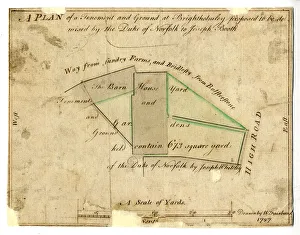 A PLAN of a Tenement and Ground at Brightholmley proposed to be de
mised by the Duke of Norfolk to Joseph Booth
Way from Sundry Farms, and Brightley, from Deffer
The Barn House Yard
Tenement and
and Gar dens
Ground
contain 673 square yards
of the Duke of Norfolk by Joseph
HIGH ROAD
West
East
A Scale of Yards
Drawn by W.